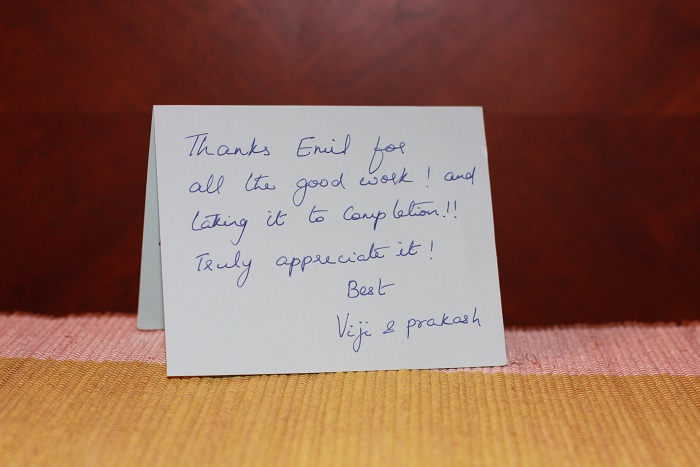 Thanks Emil for
all the good work! and
taking it to Completion!!
Truly appreciate it!
Best
Viji & prakash